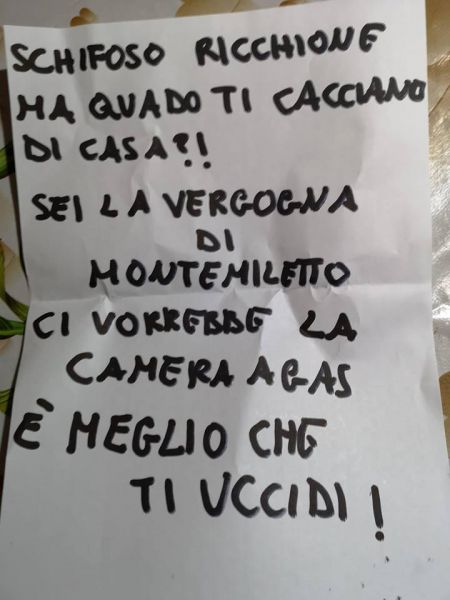 SCHIFOSO RICCHIONE
MA QUADO TI CACCIANO
DI CASA?!
SEI LA VERGOGNA
DI
MONTEMILETTO
CI VORREBBE LA
CAMERA A GAS
È MEGLIO CHE
TI UCCIDI!